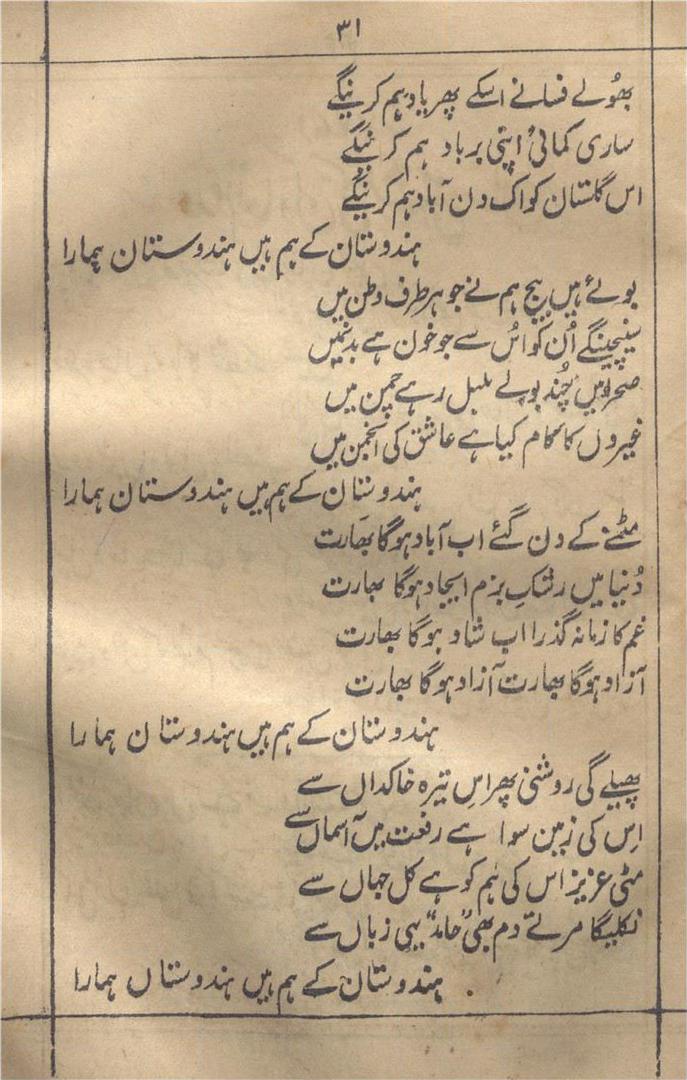 ۳۱
بھُولے فسانے اسکے پھر یاد ہم کرینگے
ساری کمائی اپنی برباد ہم کرینگے
اس گلستان کو اک دن آباد ہم کرینگے
ہندوستان کے ہم ہیں ہندوستان ہمارا
بوئے ہیں بیج ہم نے جو ہر طرف وطن میں
سینچینگے اُن کو اسُ سے جو خون ہے بدنمیں
صحرا میں چُند بولے بلبل رہے چمن میں
غیروں کا کام کیا ہے عاشق کی انجمن میں
ہندوستان کے ہم ہیں ہندوستان ہمارا
مٹنے کے دن گئے اب آباد ہوگا بھارت
دُنیا میں رشکِ بزم ایجاد ہوگا بھارت
غم کا زمانہ گذرا اب شاد ہوگا بھارت
آزاد ہوگا بھارت آزاد ہوگا بھارت
ہندوستان کے ہم ہیں ہندوستان ہمارا
پھیلے گی روشنی پھر اسِ تیرہ خاکداں سے
اسِ کی زمین سوا ہے رفعت میں آسماں سے
مٹی عزیز اس کی ہم کو ہے کل جہاں سے
نکلیگا مرتے دم بھی "حامد" یہی زباں سے
ہندوستان کے ہم ہیں ہندوستاں ہمارا